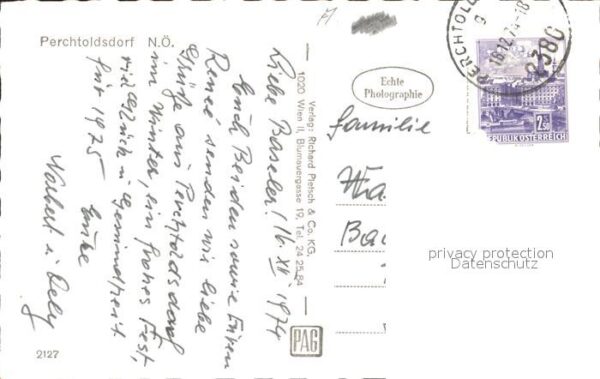 Perchtoldsdorf N.Ö.
Liebe Baseler! 16. XII. 1974
Euch Beiden sowie
Renée senden wir liebe
Grüße aus Perchtoldsdorf
im Winter, ein frohes Fest,
viel Glück u. Gesundheit
für 1975
Eure
Norbert u. Dely
2127
Verlag: Richard Pietsch & Co. KG.
1020 Wien II, Blumauergasse 19, Tel. 24 25 84
PAG
Echte
Photographie
Familie
PERCHTOLDS
18.12.74-18
2380
2.50
REPUBLIK ÖSTERREICH
privacy protection
Datenschutz